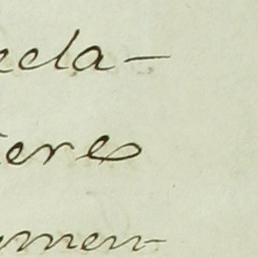 ecla-
ere
men-